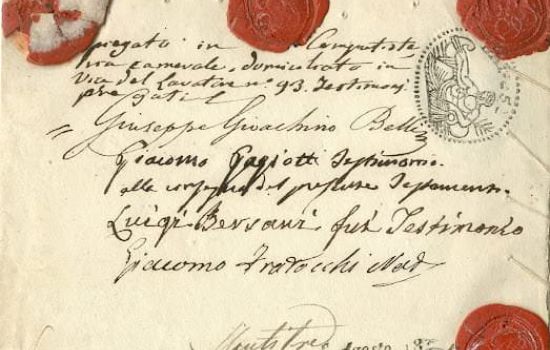 piegato in Computiste
ria camerale, domiciliato in
Via del Lavatore n° 93. Testimonj
pregati
Giuseppe Gioachino Belli
Giacomo Testimonio
alla del presente Testamento.
Luigi Bersani fui Testimonio
Giacomo Fratocchi Not